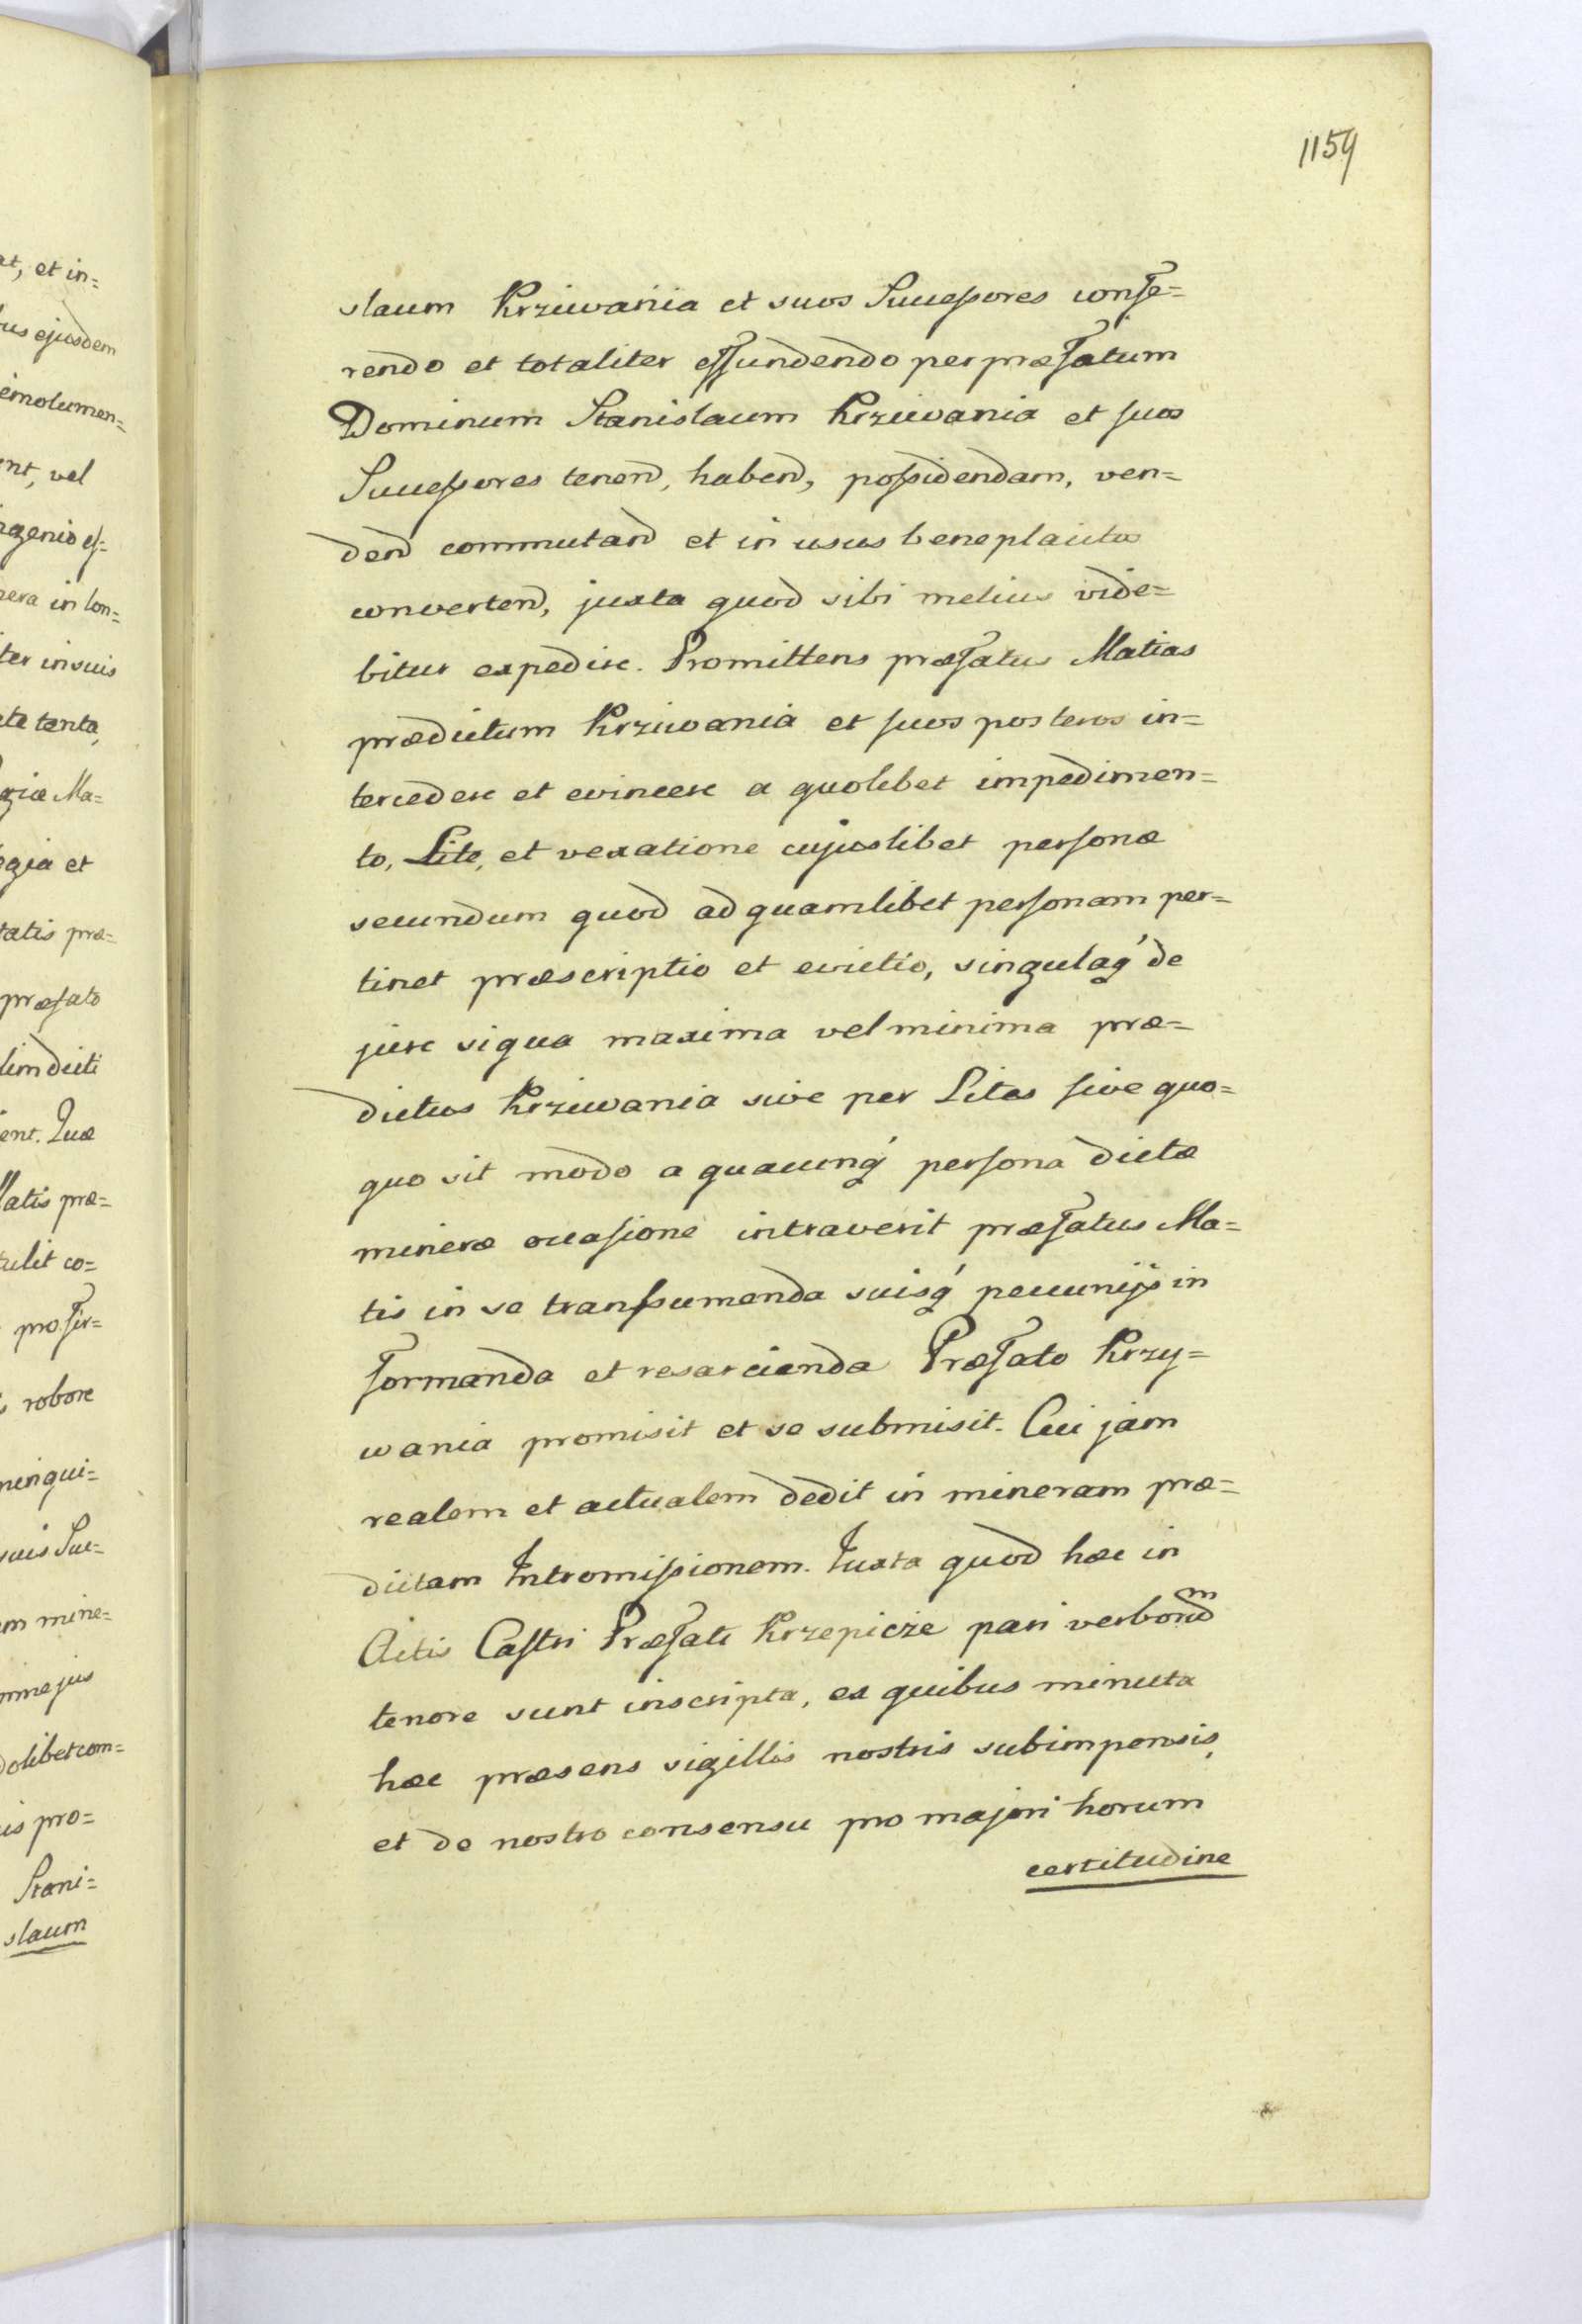 1159
slaum Krziwania et suos Successores confe=
rendo et totaliter effundendo per præfatum
Dominum Stanislaum Krziwania et suos
Successores tenend, habend, possidendam, ven=
dend commutand et in usus beneplacitos
convertend, juxta quod sibi melius vide=
bitur expedire. Promittens præfatus Matias
prædictum Krziwania et suos posteros in=
tercedere et evincere a quolibet impedimen=
to, Lite, et vexatione cujuslibet personæ
secundum quod ad quamlibet personam per=
tinet præscriptio et evictio, singulaq́ de
jure siqua maxima vel minima præ=
dictus Krziwania sive per Lites sive quo=
quo sit modo a quacunq́ persona dictæ
mineræ occasione intraverit præfatus Ma=
tis in se transsumenda suisq́ pecunijs in
formanda et resarcienda Præfato Krzy=
wania promisit et se submisit. Cui jam
realem et actualem dedit in mineram præ=
dictam Intromissionem. Juxta quod hæc in
Actis Castri Præfati Krzepicze pari verborum
tenore sunt inscripta, ex quibus minuta
hæc præsens sigillis nostris subimpensis,
et de nostro consensu pro majori horum
certitudine
et in=
ejusdem
emolumen=
vel
in con=
in suis
tanta,
Ma=
et
præ=
præfato
dicti
Quæ
Matis præ=
co=
robore
suis Suc=
mine=
jus
pro=
Stani=
slaum